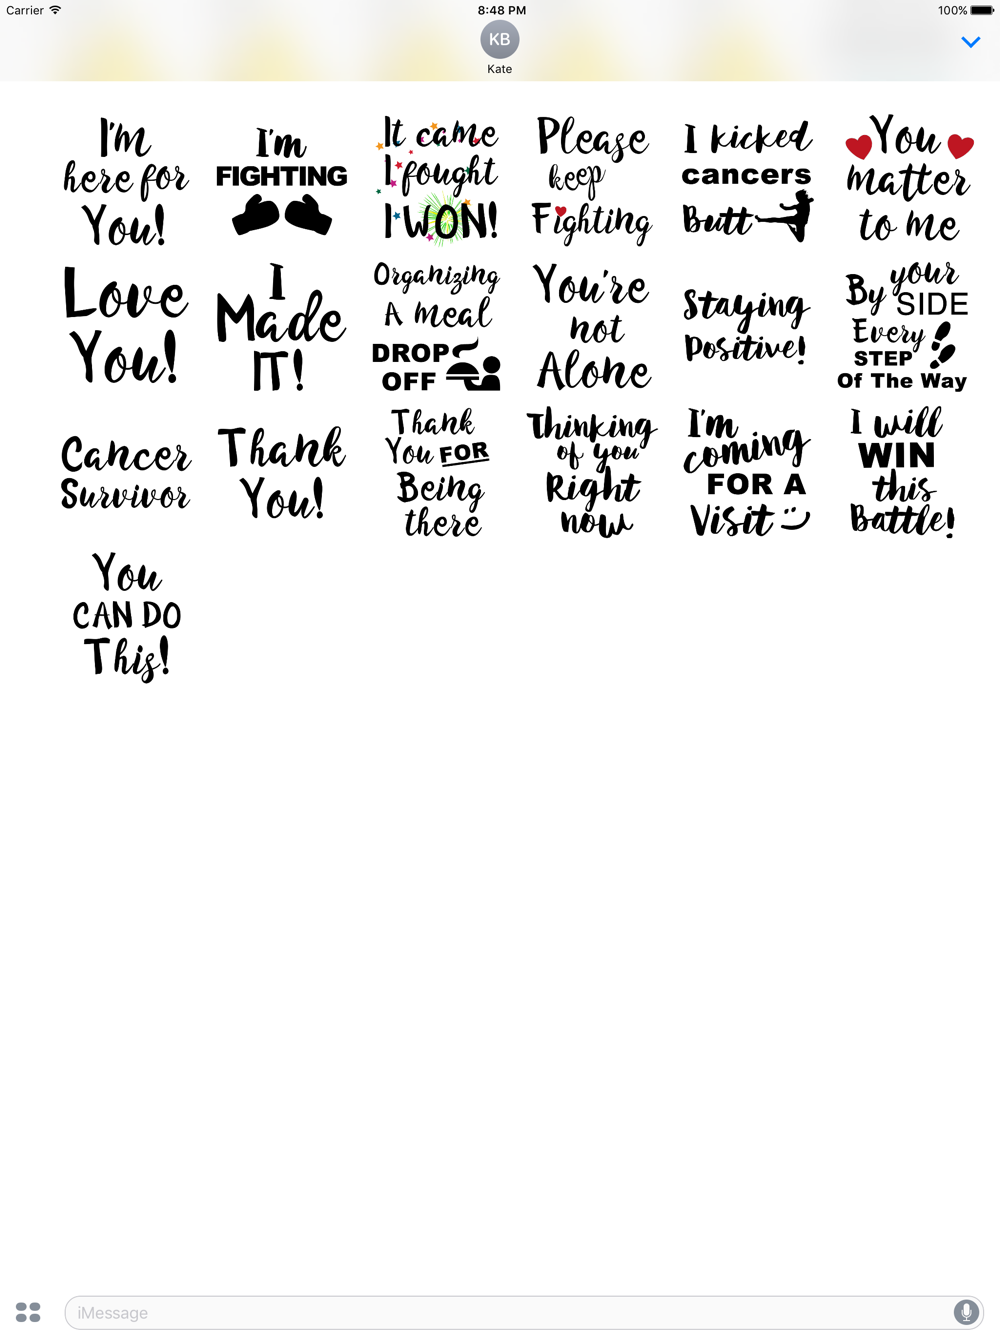 Carrier
8:48 PM
100%
KB
Kate
I'm
here for
You!
I'm
FIGHTING
It came
I fought
I WON!
Please
keep
Fighting
I kicked
cancers
Butt
You
matter
to me
Love
You!
I
Made
IT!
Organizing
A meal
DROP
OFF
You're
not
Alone
Staying
Positive!
By your
SIDE
Every
STEP
Of The Way
Cancer
Survivor
Thank
You!
Thank
You FOR
Being
there
Thinking
of you
Right
now
I'm
coming
FOR A
Visit
I will
WIN
this
Battle!
You
CAN DO
This!
iMessage